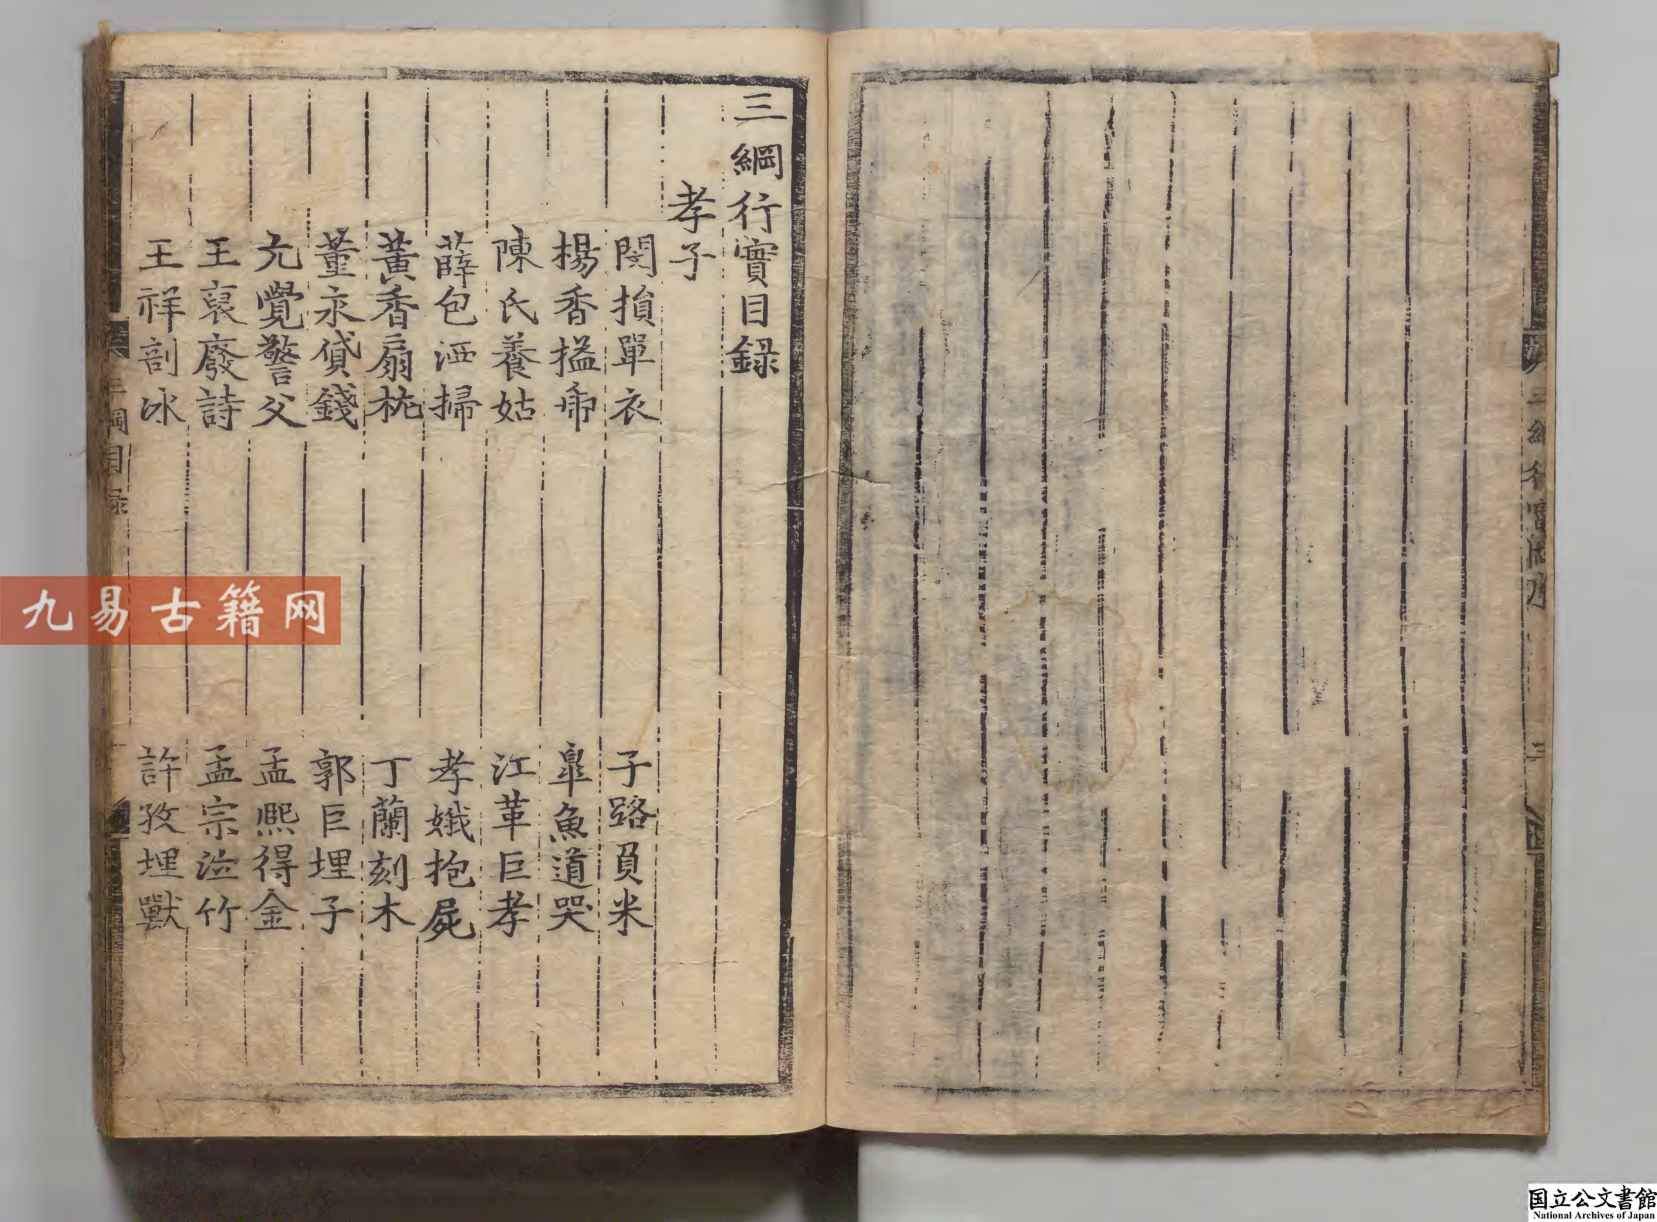 三綱行實目錄
孝子
閔損單衣
子路負米
楊香搤帍
皐魚道哭
陳氏養姑
江革巨孝
薛包洒掃
孝娥抱屍
黃香扇枕
丁蘭刻木
董永貸錢
郭巨埋子
元覺警父
孟熙得金
王裒廢詩
孟宗泣竹
王祥剖冰
許孜埋獸
三綱目錄
九易古籍网
国立公文書館
National Archives of Japan